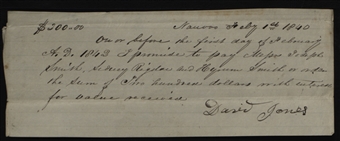 $200.00 Nauvoo Feby 1st 1840
On or before the first day of February
A.D. 1843 I promise to pay Messrs Joseph
Smith, Sidney Rigdon and Hyrum Smith or order
the Sum of Two hundred dollars with interest
for value received
David Jones